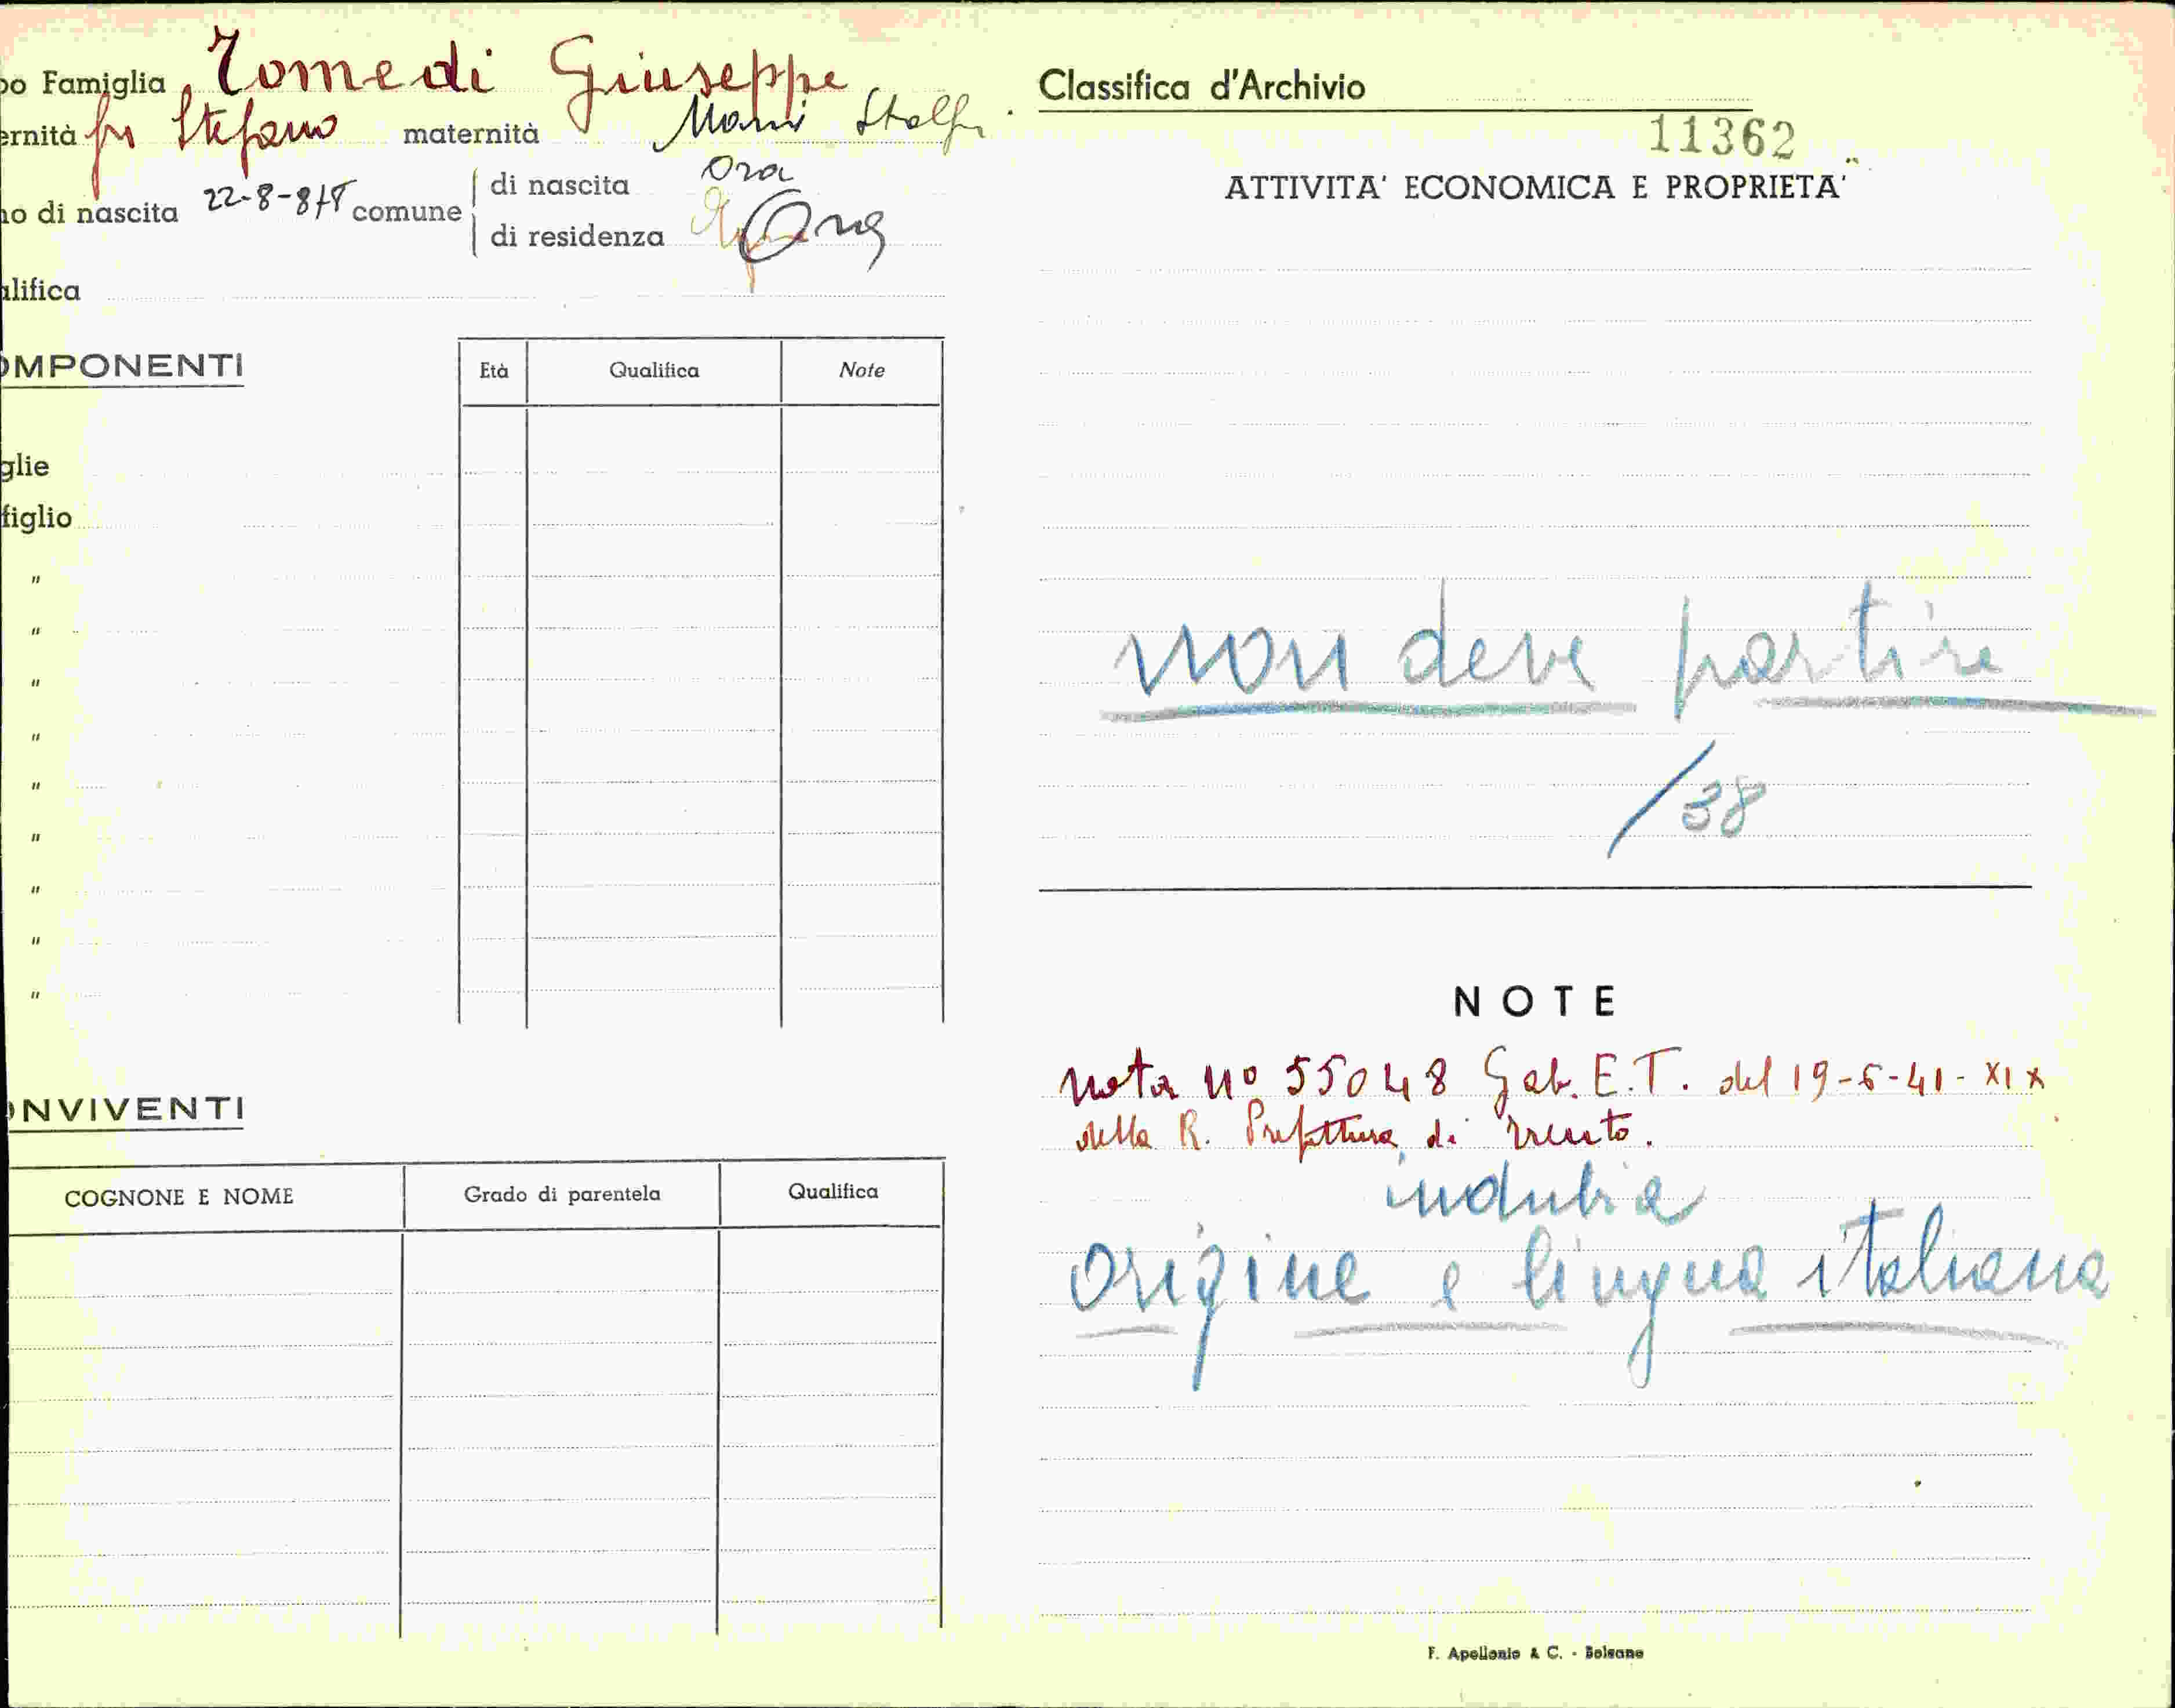 po Famiglia Tomedi Giuseppe
ernità fu Stefano maternità Maria
no di nascita 22-8-878 comune di nascita Ora
di residenza Ora
alifica
OMPONENTI
Età Qualifica Note
glie
figlio
"
"
"
"
"
"
"
"
"
ONVIVENTI
COGNONE E NOME Grado di parentela Qualifica
Classifica d'Archivio
11362
ATTIVITA' ECONOMICA E PROPRIETA'
non deve partire
/38
NOTE
nota nº 55048 Gab. E.T. del 19-6-41-XIX
della R. Prefettura di Trento.
indubia
origine e lingua italiana
F. Apollonio & C. - Bolzano